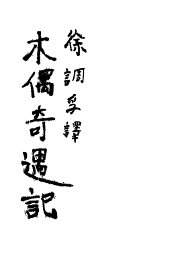 徐調孚譯
木偶奇遇記